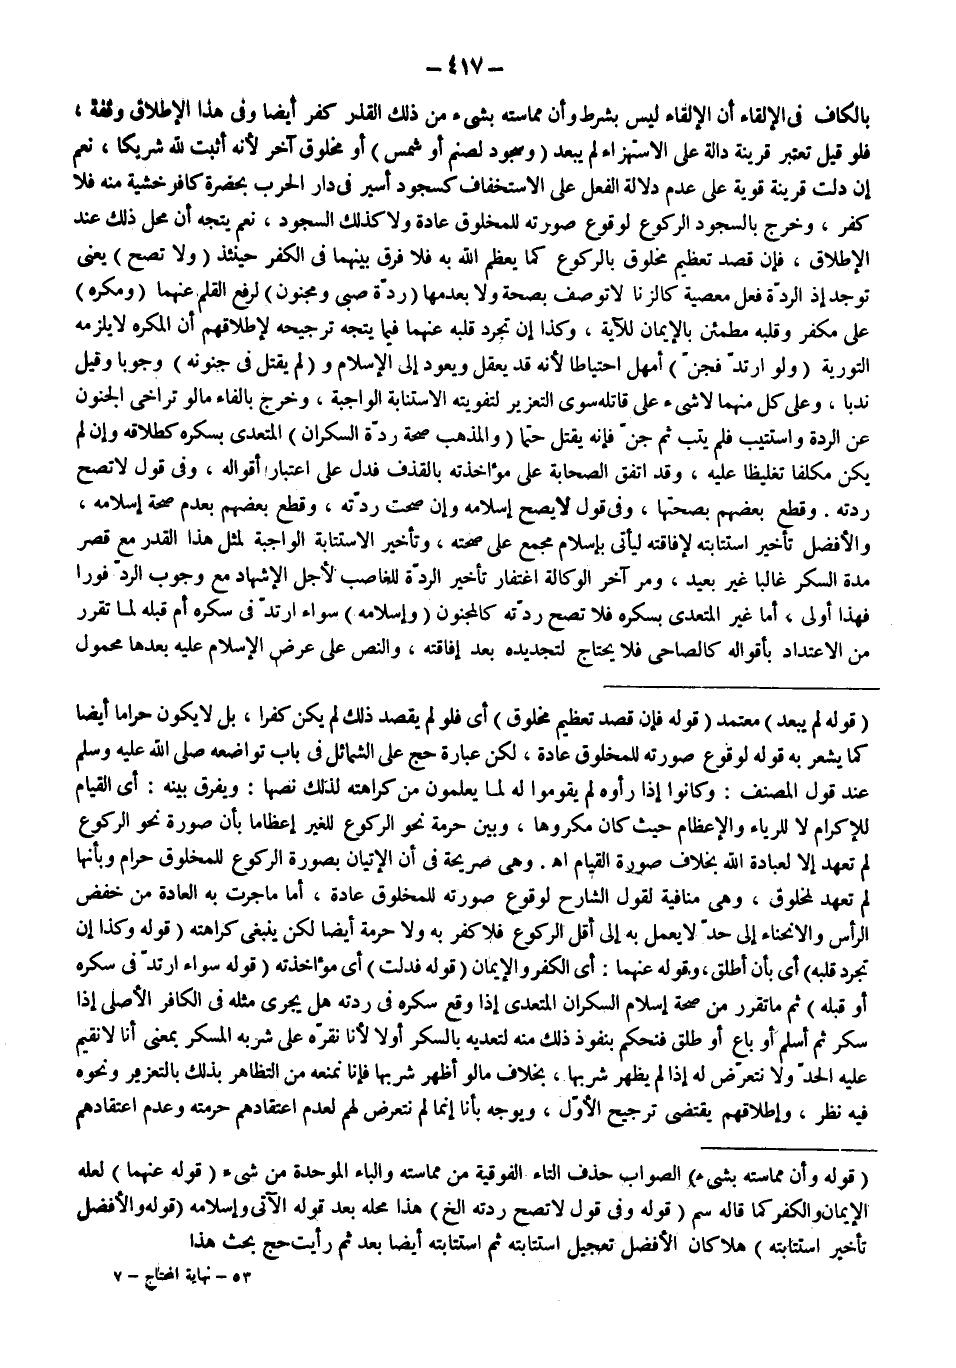 – ٤١٧ –
بالكاف فى الإلقاء أن الإلقاء ليس بشرط وأن مماسته بشىء من ذلك القذر كفر أيضا وفى هذا الإطلاق وقفة ،
فلو قيل تعتبر قرينة دالة على الاستهزاء لم يبعد ( وسجود لصنم أو شمس ) أو مخلوق آخر لأنه أثبت لله شريكا ، نعم
إن دلت قرينة قوية على عدم دلالة الفعل على الاستخفاف كسجود أسير فى دار الحرب بحضرة كافر خشية منه فلا
كفر ، وخرج بالسجود الركوع لوقوع صورته للمخلوق عادة ولا كذلك السجود ، نعم يتجه أن محل ذلك عند
الإطلاق ، فإن قصد تعظيم مخلوق بالركوع كما يعظم الله به فلا فرق بينهما فى الكفر حينئذ ( ولا تصح ) يعنى
توجد إذ الردّة فعل معصية كالزنا لاتوصف بصحة ولا بعدمها ( ردّة صبى ومجنون ) لرفع القلم عنهما ( ومكره )
على مكفر وقلبه مطمئن بالإيمان للآية ، وكذا إن تجرد قلبه عنهما فيما يتجه ترجيحه لإطلاقهم أن المكره لايلزمه
التورية ( ولو ارتدّ فجنّ ) أمهل احتياطا لأنه قد يعقل ويعود إلى الإسلام و ( لم يقتل فى جنونه ) وجوبا وقيل
ندبا ، وعلى كل منهما لاشىء على قاتله سوى التعزير لتفويته الاستتابة الواجبة ، وخرج بالفاء مالو تراخى الجنون
عن الردة واستتيب فلم يتب ثم جنّ فإنه يقتل حتما ( والمذهب صحة ردّة السكران ) المتعدى بسكره كطلاقه وإن لم
يكن مكلفا تغليظا عليه ، وقد اتفق الصحابة على مؤاخذته بالقذف فدل على اعتبار أقواله ، وفى قول لاتصح
ردته . وقطع بعضهم بصحتها ، وفى قول لايصح إسلامه وإن صحت ردّته ، وقطع بعضهم بعدم صحة إسلامه ،
والأفضل تأخير استتابته لإفاقته ليأتى بإسلام مجمع على صحته ، وتأخير الاستتابة الواجبة لمثل هذا القدر مع قصر
مدة السكر غالبا غير بعيد ، ومر آخر الوكالة اغتفار تأخير الردّة للغاصب لأجل الإشهاد مع وجوب الردّ فورا
فهذا أولى ، أما غير المتعدى بسكره فلا تصح ردّته كالمجنون ( وإسلامه ) سواء ارتدّ فى سكره أم قبله لما تقرر
من الاعتداد بأقواله كالصاحى فلا يحتاج لتجديده بعد إفاقته ، والنص على عرض الإسلام عليه بعدها محمول
( قوله لم يبعد ) معتمد ( قوله فإن قصد تعظيم مخلوق ) أى فلو لم يقصد ذلك لم يكن كفرا ، بل لايكون حراما أيضا
كما يشعر به قوله لوقوع صورته للمخلوق عادة ، لكن عبارة حج على الشمائل فى باب تواضعه صلى الله عليه وسلم
عند قول المصنف : وكانوا إذا رأوه لم يقوموا له لما يعلمون من كراهته لذلك نصها : ويفرق بينه : أى القيام
للإكرام لا للرياء والإعظام حيث كان مكروها ، وبين حرمة نحو الركوع للغير إعظاما بأن صورة نحو الركوع
لم تعهد إلا لعبادة الله بخلاف صورة القيام اه . وهى صريحة فى أن الإتيان بصورة الركوع للمخلوق حرام وبأنها
لم تعهد لمخلوق ، وهى منافية لقول الشارح لوقوع صورته للمخلوق عادة ، أما ماجرت به العادة من خفض
الرأس والانحناء إلى حدّ لايعمل به إلى أقل الركوع فلا كفر به ولا حرمة أيضا لكن ينبغى كراهته ( قوله وكذا إن
تجرد قلبه ) أى بأن أطلق ، وقوله عنهما : أى الكفر والإيمان ( قوله فدلت ) أى مؤاخذته ( قوله سواء ارتدّ فى سكره
أو قبله ) ثم ماتقرر من صحة إسلام السكران المتعدى إذا وقع سكره فى ردته هل يجرى مثله فى الكافر الأصلى إذا
سكر ثم أسلم أو باع أو طلق فنحكم بنفوذ ذلك منه لتعديه بالسكر أولا لأنا نقرّه على شربه المسكر بمعنى أنا لانقيم
عليه الحدّ ولا نتعرّض له إذا لم يظهر شربها ، بخلاف مالو أظهر شربها فإنا نمنعه من التظاهر بذلك بالتعزير ونحوه
فيه نظر ، وإطلاقهم يقتضى ترجيح الأوّل ، ويوجه بأنا إنما لم نتعرض لهم لعدم اعتقادهم حرمته وعدم اعتقادهم
( قوله وأن مماسته بشىء ) الصواب حذف التاء الفوقية من مماسته والباء الموحدة من شىء ( قوله عنهما ) لعله
الإيمان والكفر كما قاله سم ( قوله وفى قول لاتصح ردته الخ ) هذا محله بعد قوله الآتى وإسلامه ( قوله والأفضل
تأخير استتابته ) هلا كان الأفضل تعجيل استتابته ثم استتابته أيضا بعد ثم رأيت حج بحث هذا
٥٣ – نهاية المحتاج – ٧